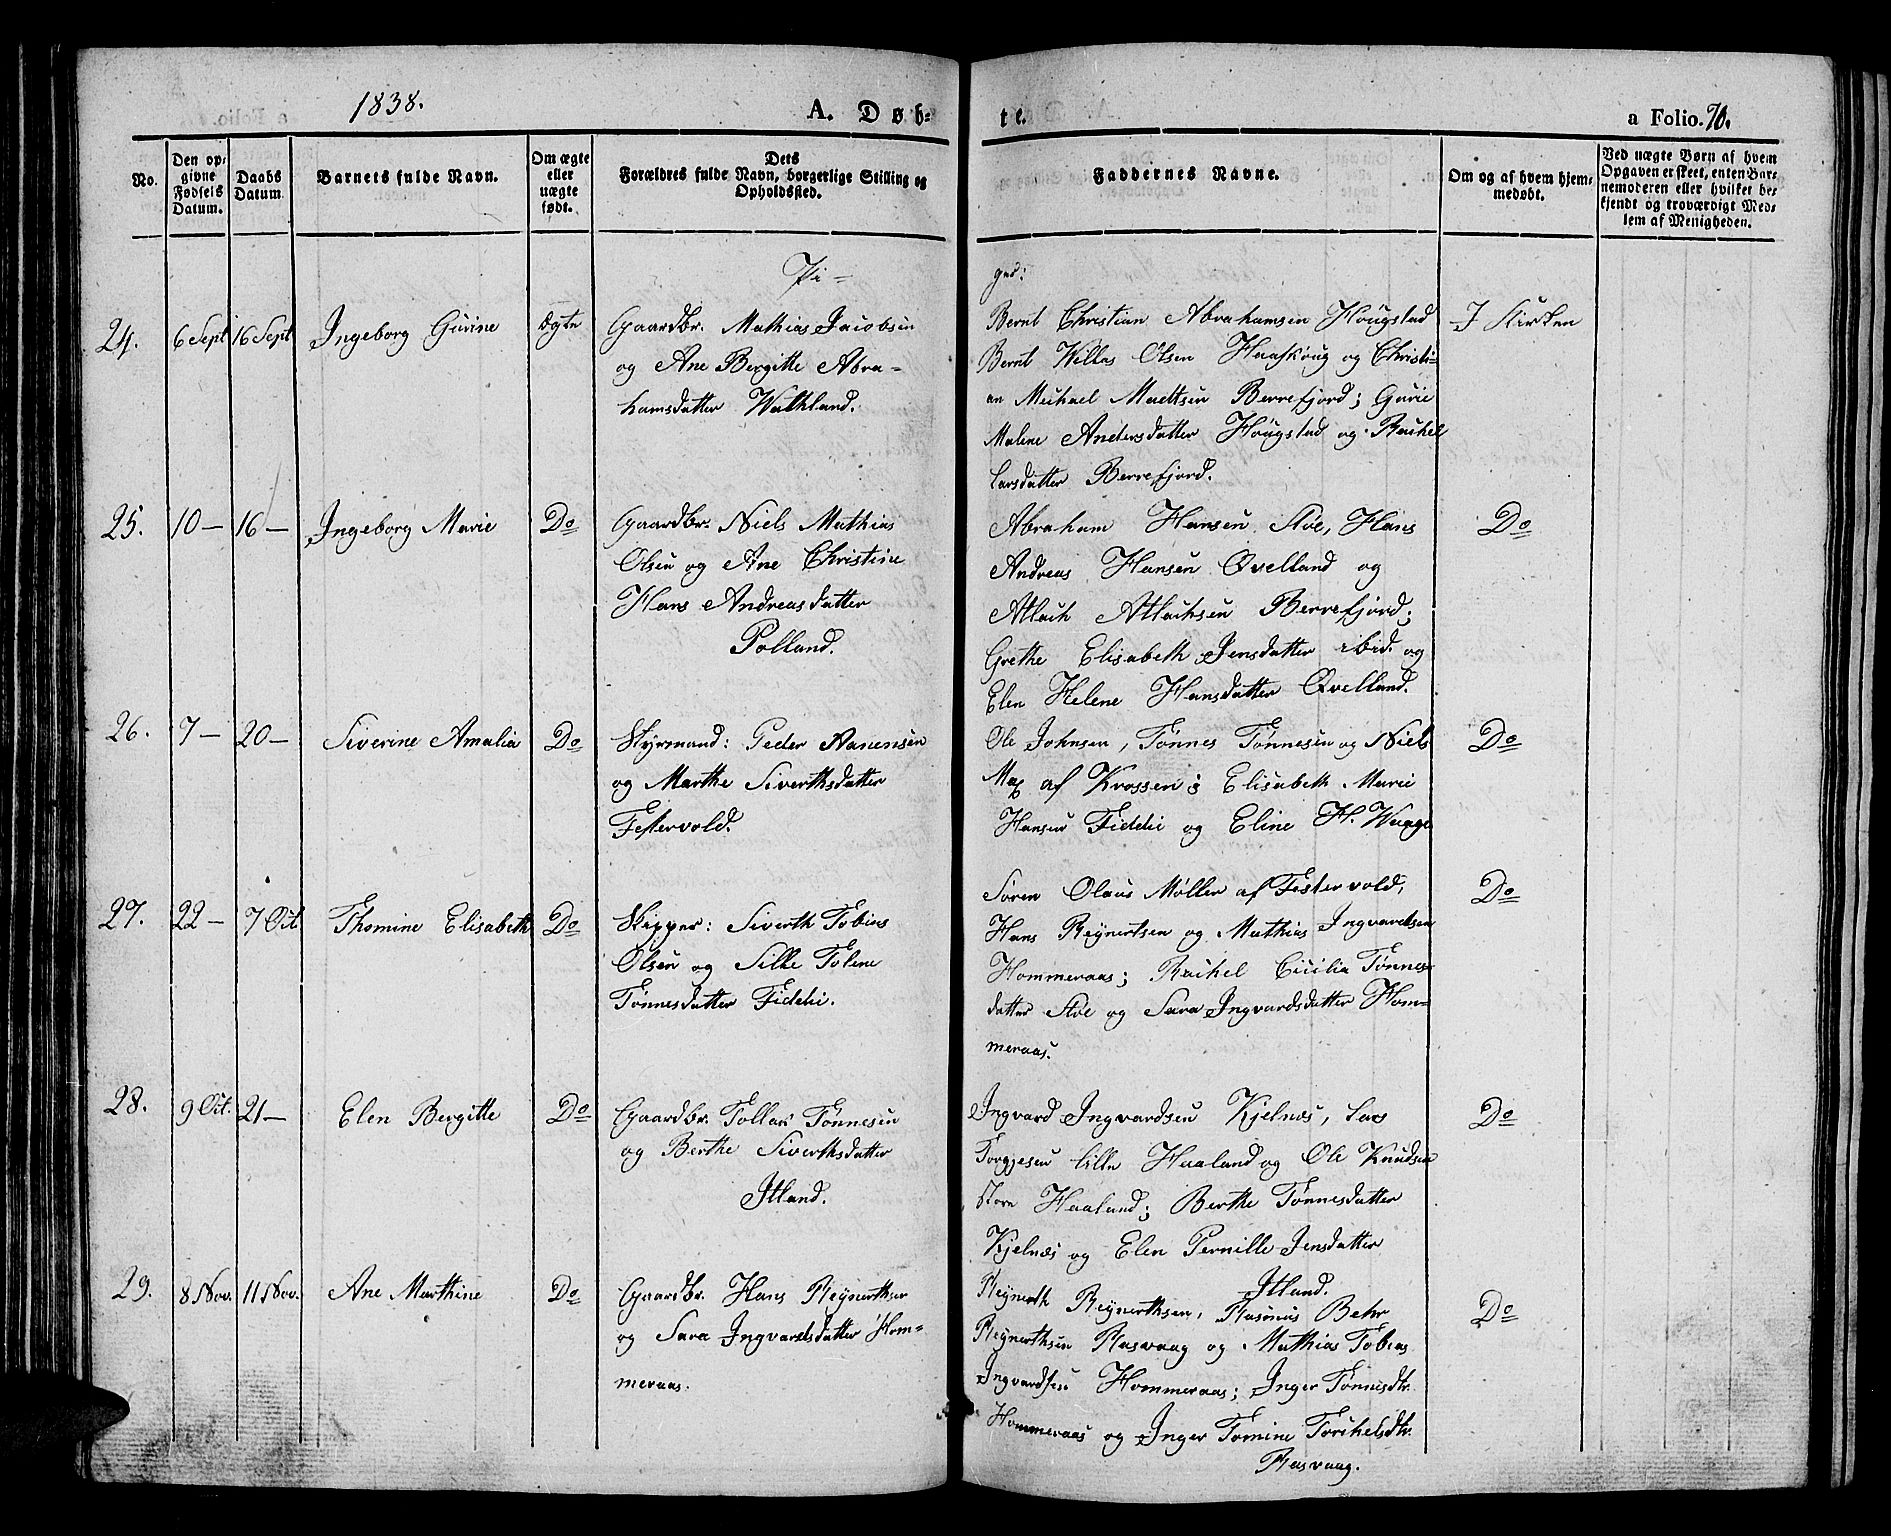 1838.
A. Døb-
te.
a Folio. 70.
No.
Den op-
givne
Fødsels
Datum.
Daabs
Datum
Barnets fulde Navn.
Om ægte
eller
uægte
født.
Dets
Forældres fulde Navn, borgerlige Stilling og
Opholdssted.
Faddernes Navne.
Om og af hvem hjem-
medøbt.
Ved uægte Børn af hvem
Opgaven er skeet, enten Bar-
nemoderen eller hvilket be-
kjendt og troværdigt Med-
lem af Menigheden.
Pi-
ger:
24. 6 Sept 16 Sept Ingeborg Gurine Ægte
Gaardbr. Mathias Jacobsen
og Ane Bergitte Abra-
hamsdatter Walkland.
Bernt Christian Abrahamsen Hougstad
Bernt Willas Olsen Haaskoug og Christi-
an Michael Madtsen Berrefjord; Gurie
Malene Andersdatter Hougstad og Rachel
Larsdatter Berrefjord.
I Kirken
25. 10 — 16 — Ingeborg Marie Do
Gaardbr. Niels Mathias
Olsen og Ane Christine
Hans Andreasdatter
Polland.
Abraham Hansen Stve, Hans
Andreas Hansen Øvelland og
Atlach Atlachsen Berrefjord;
Grethe Elisabeth Jensdatter ibid. og
Elen Helene Hansdatter Øvelland.
Do
26. 7 — 20 — Siverine Amalia Do
Styrmand: Peder Aanensen
og Marthe Siverthsdatter
Festervold.
Ole Johnsen, Tønnes Tønnesen og Niels
Max af Krossen; Elisabeth Marie
Hansen Fiddie og Eline H. Waage
Do
27. 22 — 7 Oct Thomine Elisabeth Do
Skipper: Siverth Tobias
Olsen og Silke Tolene
Tønnesdatter Fiddie.
Søren Olaus Møller af Festervold,
Hans Reynertsen og Mathias Ingvardtsen
Hommeraas; Rachel Cicilia Tønnes-
datter Stve og Sara Ingvardsdatter Hom-
meraas.
Do
28. 9 Oct. 21 — Elen Bergitte Do
Gaardbr. Tollak Tønnesen
og Berthe Siverthsdatter
Itland.
Ingvard Ingvardsen Kjelnæs, Lars
Torgjesen lille Haaland og Ole Knudsen
store Haaland; Berthe Tønnesdatter
Kjelnæs og Elen Pernille Jensdatter
Itland.
Do
29. 8 Nov. 11 Nov. Ane Marthine Do
Gaardbr. Hans Reynerthsen
og Sara Ingvardsdatter Hom-
meraas.
Reynerth Reynerthsen, Rasmus Behr
Reynerthsen Rasvaag og Mathias Tobias
Ingvardsen Hommeraas; Inger Tønnesdtr.
Hommeraas og Inger Tomine Torkelsdtr.
Rasvaag.
Do